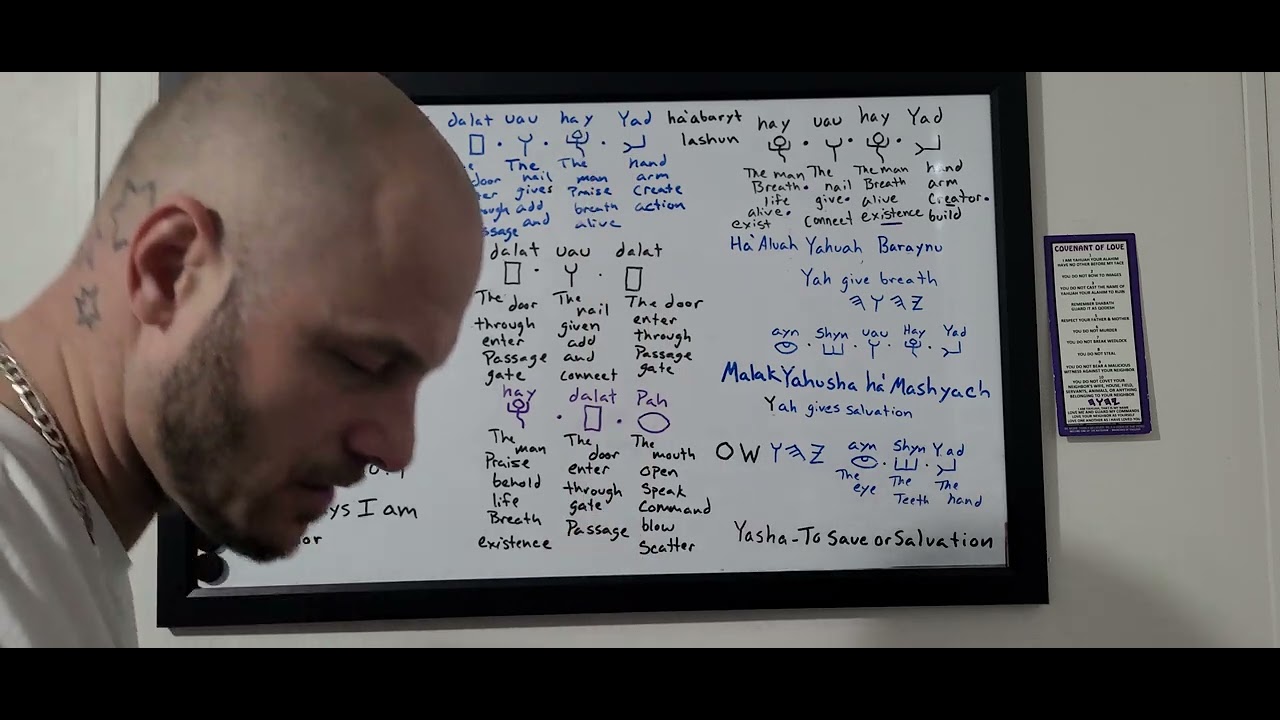 dalat uau hay Yad
The The hand
door nail man arm
gives Praise Create
add breath action
and alive
dalat uau dalat
The door The nail The door
through given enter
enter add through
Passage and Passage
gate connect gate
hay dalat Pah
The man The door The mouth
Praise enter open
behold through Speak
life gate Command
Breath Passage blow
existence Scatter
I am
ha'abaryt
lashun
hay uau hay Yad
The man The The man hand
Breath. nail Breath arm
life give. alive Creator.
alive. connect existence build
exist
Ha'Aluah Yahuah Baraynu
Yah give breath
ayn Shyn uau Hay Yad
Malak Yahusha ha' Mashyach
Yah gives salvation
ayn Shyn Yad
The eye The Teeth The hand
Yasha-To save or Salvation
COVENANT OF LOVE
1
I AM YAHUAH YOUR ALAHIM
HAVE NO OTHER BEFORE MY FACE
2
YOU DO NOT BOW TO IMAGES
3
YOU DO NOT CAST THE NAME OF
YAHUAH YOUR ALAHIM TO RUIN
4
REMEMBER SHABATH
GUARD IT AS QODESH
5
RESPECT YOUR FATHER & MOTHER
6
YOU DO NOT MURDER
7
YOU DO NOT BREAK WEDLOCK
8
YOU DO NOT STEAL
9
YOU DO NOT BEAR A MALICIOUS
WITNESS AGAINST YOUR NEIGHBOR
10
YOU DO NOT COVET YOUR
NEIGHBOR'S WIFE, HOUSE, FIELD,
SERVANTS, ANIMALS, OR ANYTHING
BELONGING TO YOUR NEIGHBOR
I AM YAHUAH, THAT IS MY NAME
LOVE ME AND GUARD MY COMMANDS
LOVE YOUR NEIGHBOR AS YOURSELF
LOVE ONE ANOTHER AS I HAVE LOVED YOU